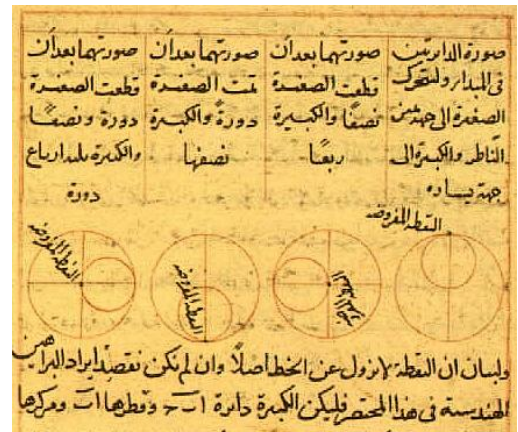 صورة الدايرتين
فى المبدا ولتتحرك
الصغيرة الى جهة يمين
الناظر والكبيرة الى
جهة يساره
صورتهما بعد أن
قطعت الصغيرة
نصفًا والكبيرة
ربعًا
صورتهما بعد أن
تمت الصغيرة
دورةً والكبيرة
نصفها
صورتهما بعد أن
قطعت الصغيرة
دورة ونصفًا
والكبيرة ثلثة ارباع
دورة
النقطة المفروضة
النقطة المفروضة
النقطة المفروضة
ولبيان ان النقطة لا تزول عن الخط اصلاً وان لم نكن نقصد ايراد البراهين
الهندسية فى هذا المختصر فليكن الكبيرة دائرة ا ب وقطرها ا ب ومركزها